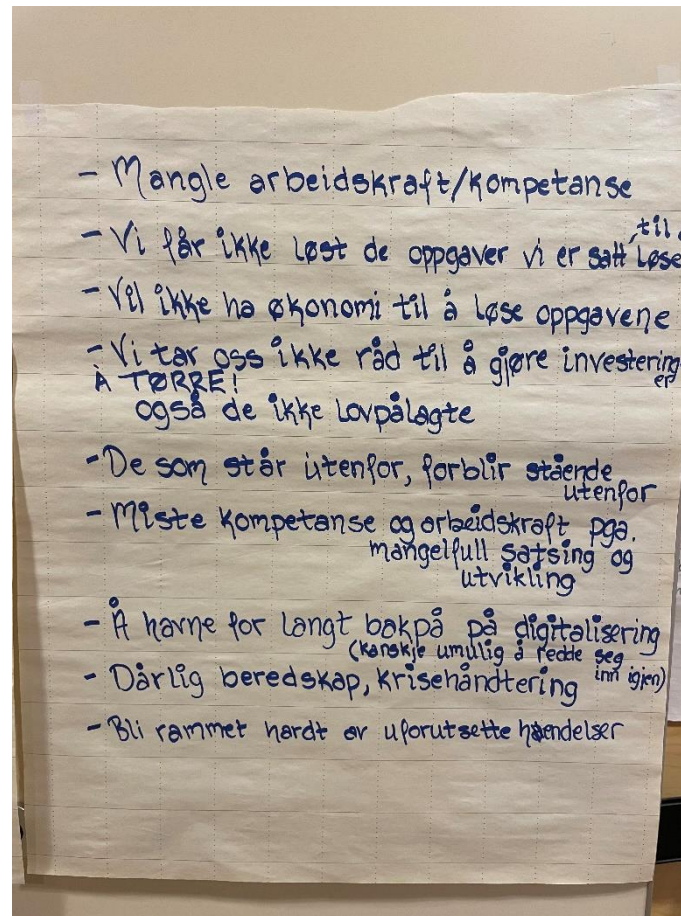 - Mangle arbeidskraft/kompetanse
- Vi får ikke løst de oppgaver vi er satt til å løse
- Vil ikke ha økonomi til å løse oppgavene
- Vi tar oss ikke råd til å gjøre investeringer
Å TØRRE!
også de ikke lovpålagte
- De som står utenfor, forblir stående
utenfor
- Miste kompetanse og arbeidskraft pga.
mangelfull satsing og
utvikling
- Å havne for langt bakpå på digitalisering
(kanskje umulig å redde seg
inn igjen)
- Dårlig beredskap, krisehåndtering
- Bli rammet hardt av uforutsette hendelser